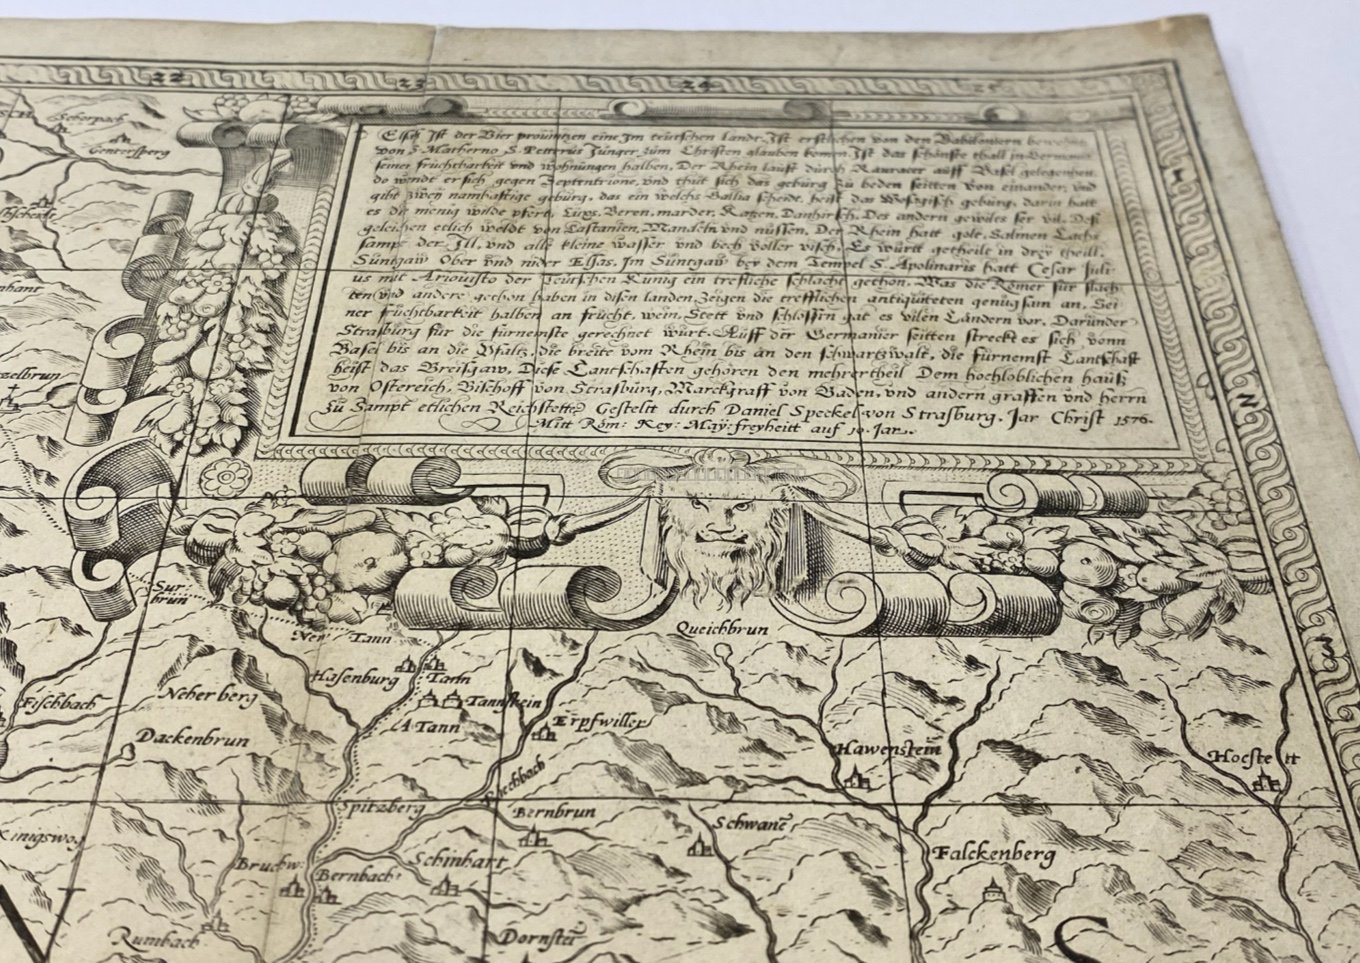 22 23 24 25
Schorpach
Gentersperg
Elsas Jst der Vier prouintzen eine Jm teutschen lande, Jst erstlichen von den Babiloniern bewohnt
von S. Matherno S. Petterus Junger zum Christen glauben komen Jst das schönste thall in Germania
seiner fruchtbarkeit vnd wohnungen halben, Der Rhein lauft durch Rauracer auff Basel gelegenhen,
do wendt er sich gegen Septentrione, vnd thut sich das gebürg zu beden seitten von einander, vnd
gibt zweÿ namhaftige gebürg, das ein welchs Gallia scheidt heist das Wesgisch gebürg, darin hatt
es die menig wilde pfert, Lüps, Beren, marder, Katzen, Danhirsch, Des andern gewiles ser vil, Des
geleichen etlich weldt von Castanien, Mandeln vnd nüssen, Der Rhein hatt golt, Salmen Lachs
sampt der Ill, vnd alle kleine wasser vnd bech voller visch, Es württ getheilt in dreÿ theill,
Süntgaw Ober vnd nider Elsas, Jm Süntgaw beÿ dem Tempel S. Apolinaris hatt Cesar Juli-
us mit Ariouisto der Teutschen Künig ein trefliche schlacht gethon, Was die Römer für slach-
ten vnd andere gethon haben in disen landen, Zeigen die trefflichen antiquiteten genügsam an, Sei-
ner früchtbarkeit halben an frücht, wein, Stett vnd schlössin gat es vilen Ländern vor, Daründer
Strasbürg für die fürnemste gerechnet würt, Auff der Germanier seitten streckt es sich vonn
Basel bis an die Pfaltz, die breite vom Rhein bis an den schwartzwalt, die fürnemst Lantschaft
heist das Breisgaw, Diese Lantschaften gehören den mehrertheil Dem hochloblichen hauß
von Ostereich, Bischoff von Strasbürg, Marckgraff von Baden, vnd andern graffen vnd herrn
zü Sampt etlichen Reichstette Gestelit durch Daniel Speckel von Strasburg, Jar Christ 1576.
Mitt Röm: Key: Maÿ: freyheitt auf 10 Jar.
1
2
3
Sur
brun
Queichbrun
New Tann
Hasenburg
Tann
Fischbach
Neherberg
Tannstein
4 Tann
Erpfwiller
Dackenbrun
Hawenstein
Hocstett
Spitzberg
Bernbrun
Schwane
Bruchw:
Schinhart
Falckenberg
Bernbach
Rumbach
Dornstet
S